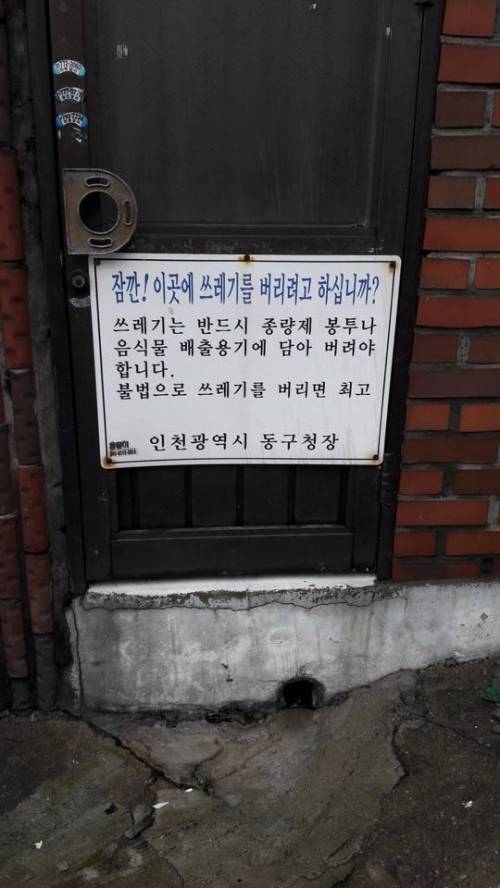 잠깐! 이곳에 쓰레기를 버리려고 하십니까?
쓰레기는 반드시 종량제 봉투나
음식물 배출용기에 담아 버려야
합니다.
불법으로 쓰레기를 버리면 최고
인천광역시 동구청장